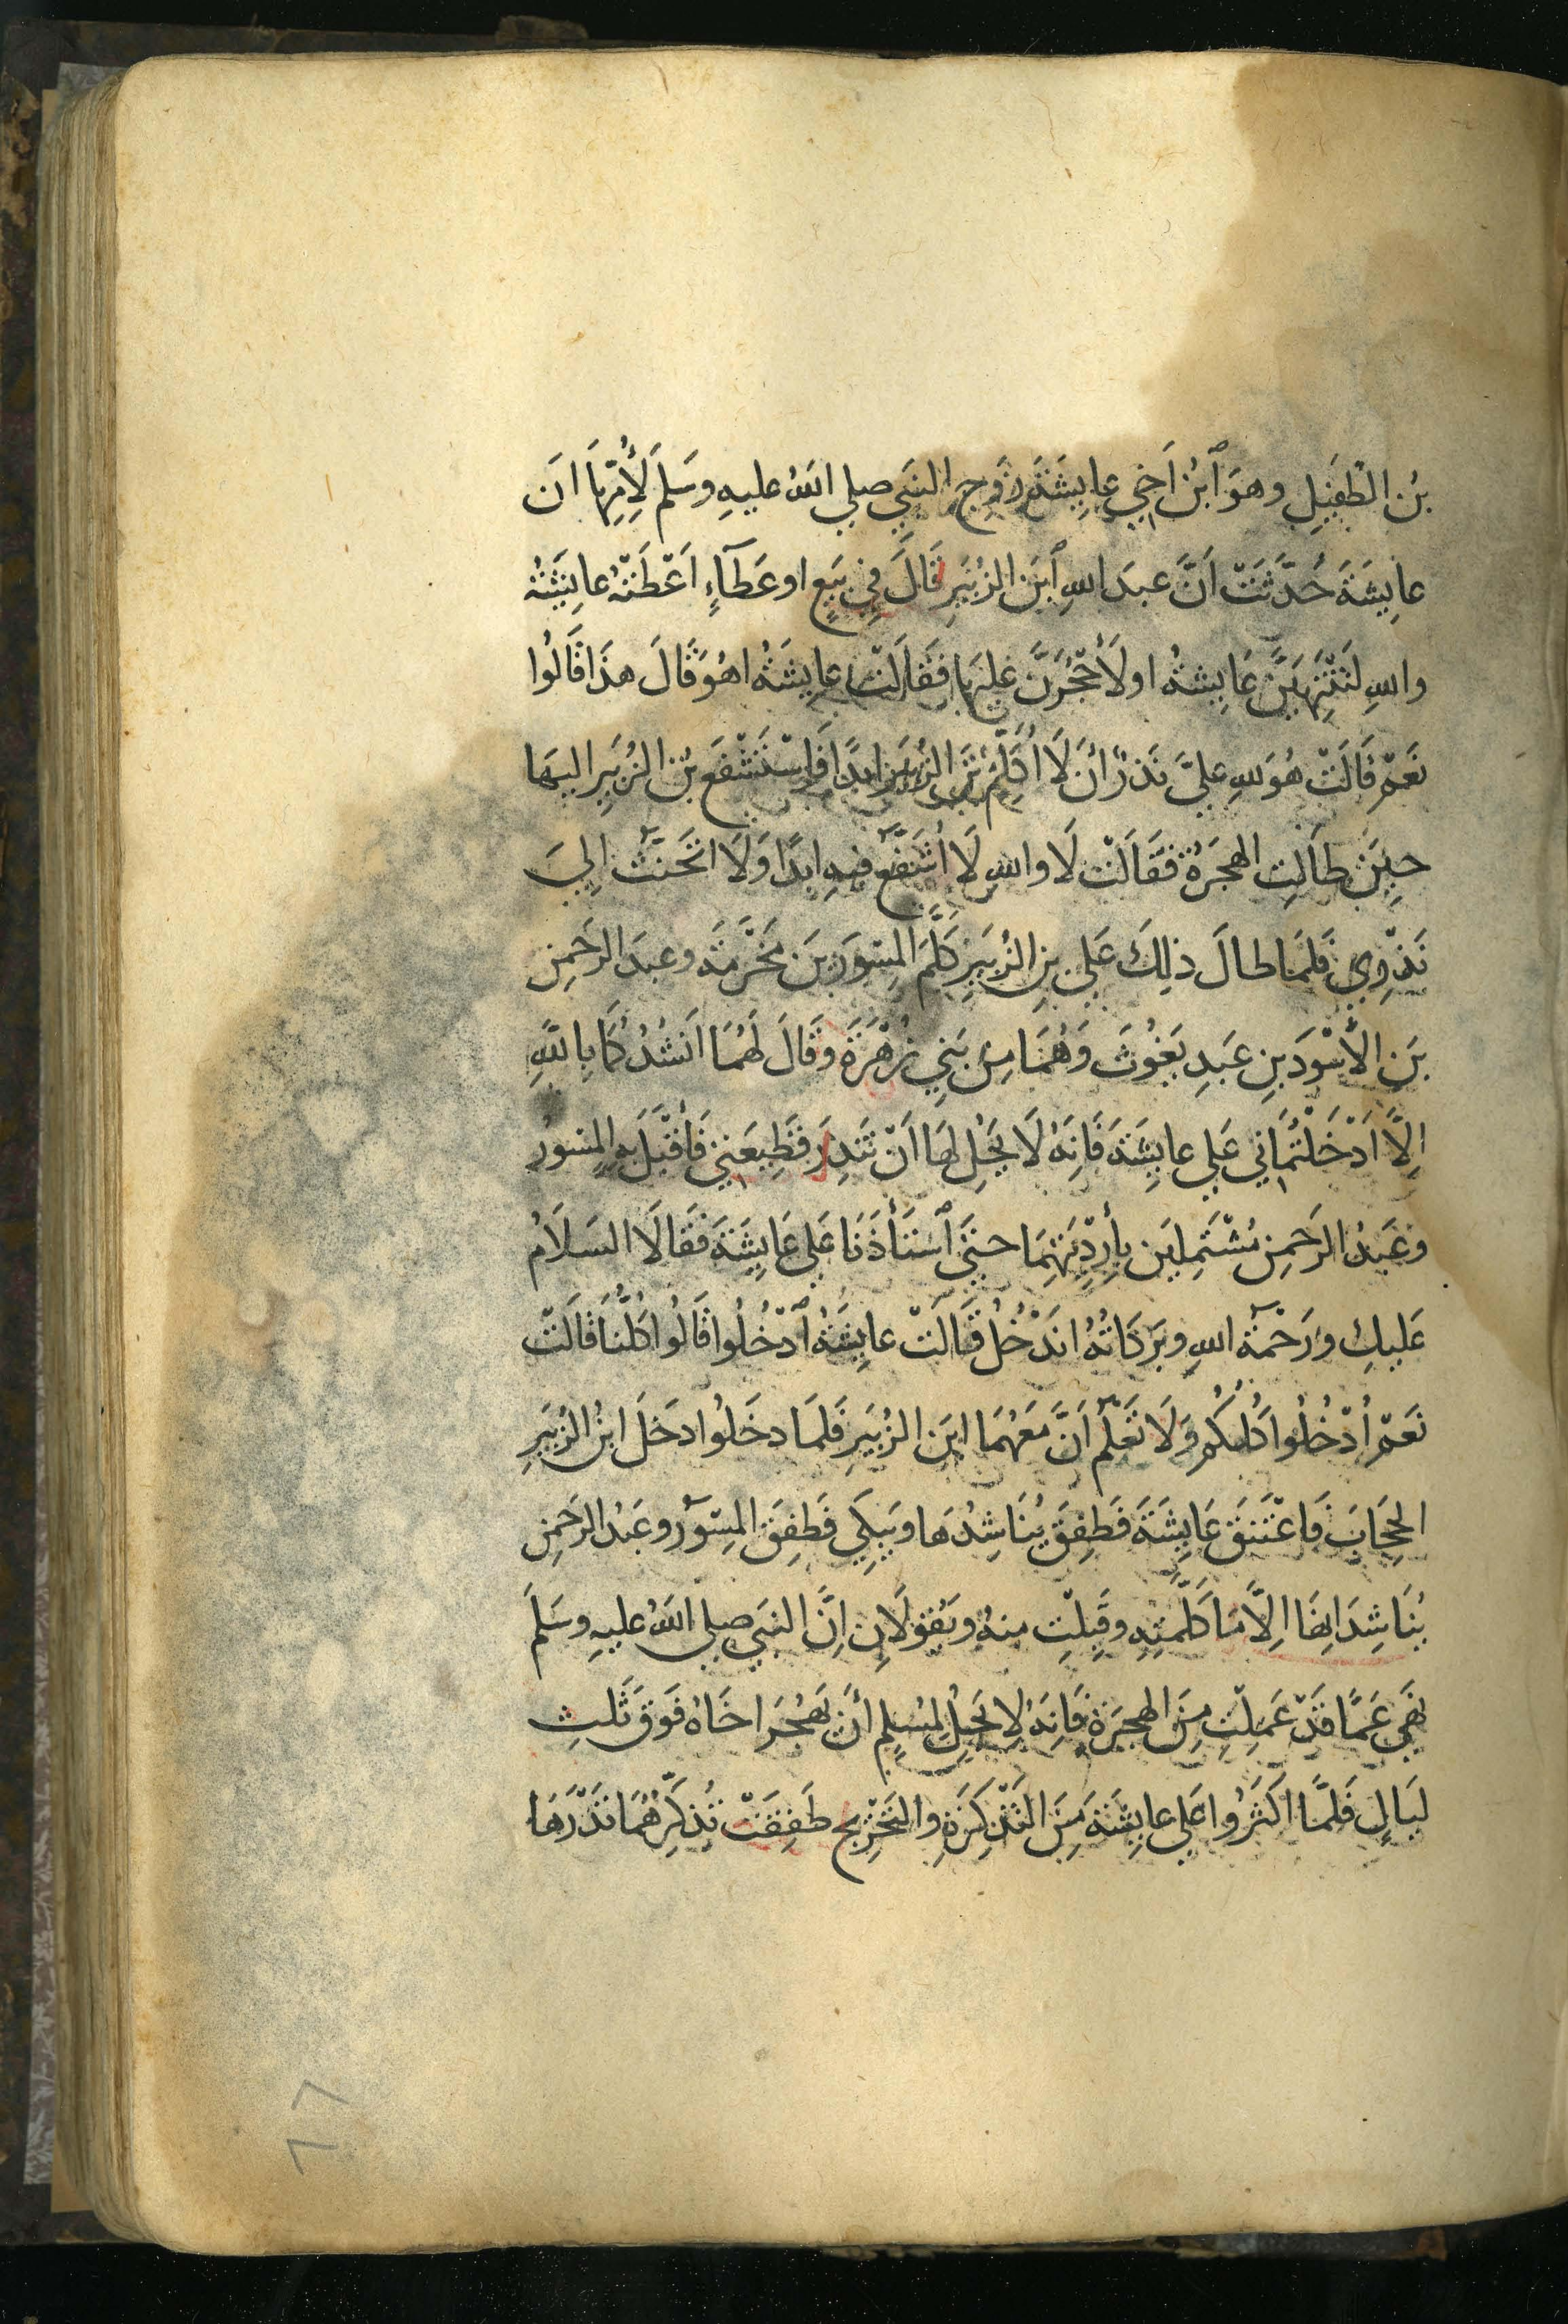 بْنِ الطُّفَيْلِ وهوَ ٱبْنُ اَخِي عايِشَةَ زَوجِ النَّبِيِّ صلي اللهُ عليهِ وسَلم لأُمِّهَا انَ
عايِشَةَ حُدِّثَتْ اَنَّ عبدَ اللهِ ٱبنَ الزُبَيرِ قَالَ فِي بَيعٍ او عَطَآءٍ اَعْطَتْهُ عايِشَةُ
واللهِ لَتَنْتَهِيَنَّ عَايِشةُ او لَأَحْجُرَنَّ عَلَيهَا فَقَالَتْ عايِشَةُ اهُوَ قَالَ هذَا قَالُوا
نَعَمْ قَالَتْ هُوَ للهِ عليَّ نَذرٌ أَنْ لَا اُكَلِّمَ بْنَ الزُبَيرِ ابدًا فَاِسْتَشْفَعَ بْنُ الزُبَيرِ اليهَا
حِينَ طَالَتِ الهجرَةُ فَقَالَتْ لَا واللهِ لَا اُشَفِّعُ فيهِ ابدًا وَلَا اتَحَنَّثُ اِلَيَ
نَذْرِي فَلمَا طالَ ذلِكَ عَلي بنِ الزُبَيرِ كَلَّمَ المِسْوَرَ بنَ مَخْرَمَةَ وعبدَ الرَحَمنِ
بنَ الأَسْوَدَ بنِ عَبدِ يَغُوثَ وَهُمَا مِنْ بَنِي زُهْرَةَ وَقَالَ لَهُمَا اَنْشُدُكُمَا بِاللهِ
اِلَّا اَدْخَلْتُمَانِي عَلي عايِشَةَ فَاِنَهُ لَا يَحِلُ لهَا اَنْ تَنذِرَ قَطِيعَتِي فَأَقْبَلَ بهِ المِسْوَرُ
وعَبدُ الرَحَمنِ مُشْتَمِلَينِ بِأَردِيَتِهِمَا حتَّي ٱسْتَأْذَنَا عَلي عَايِشَةَ فَقَالَا السَلَامُ
عَليكِ ورَحْمَةُ اللهِ وبرَكَاتُهُ اندْخُلُ قَالَتْ عايِشَةُ ٱدْخُلُوا قَالُوا كُلُّنَا قَالَتْ
نَعَمْ اُدْخُلُوا كُلُكُمْ وَلَا تَعْلَمُ اَنَّ مَعَهُمَا ابنَ الزُبَيرِ فَلمَا دخَلُوا دخَلَ ابنُ الزُبَيرِ
الحِجَابَ فَاعْتَنَقَ عَايِشَةَ فَطفِقَ يُنَاشِدُهَا ويَبكِي فَطفِقَ المِسْوَرُ وعَبدُ الرَحَمنِ
يُنَاشِدَانِهَا اِلَّا مَا كَلَّمتِهِ وقَبِلْتِ منهُ ويَقُولَانِ اِنَّ النَبيَ صلي اللهُ عليهِ وسَلَمَ
نَهَي عَمَّا قَدْ عَمِلْتِ مِنَ الهجرَةِ فَاِنَهُ لا يَحِلُ لِمُسلِمٍ اَنْ يَهْجُرَ اخَاهُ فَوقَ ثَلثِ
لَيَالٍ فَلَمَّا اكَثَرُوا عَلي عايِشَةَ مِنَ التَّذكِرَةِ والتَحْرِيجِ طَفِقَتْ تُذَكِّرُهُمَا نَذْرَهَا